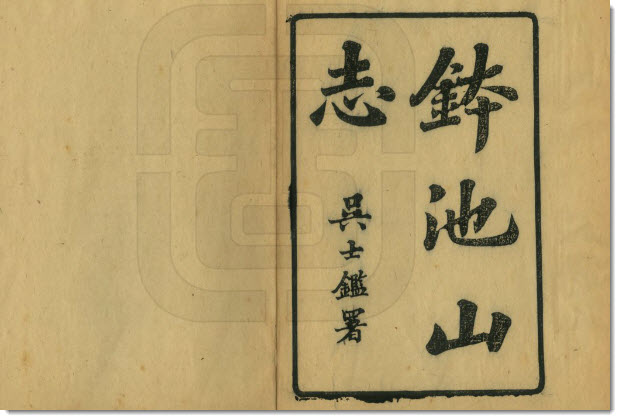 鉢池山
志
吳士鑑署